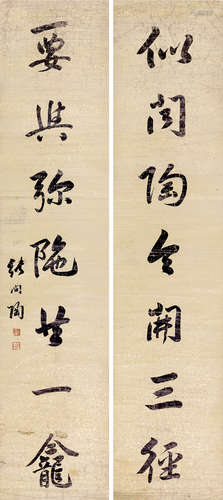 似聞陶令開三徑
要與彌陀共一龕
張問陶